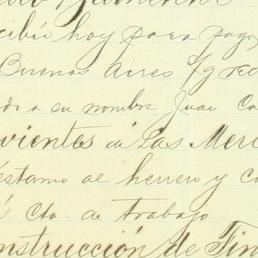 cibió hoy para pagar
Buenos Aires
do a su nombre Juan Ca
vientes a Las Mer
éstamo al herrero y c
Cta de trabajo
nstrucción de Tin